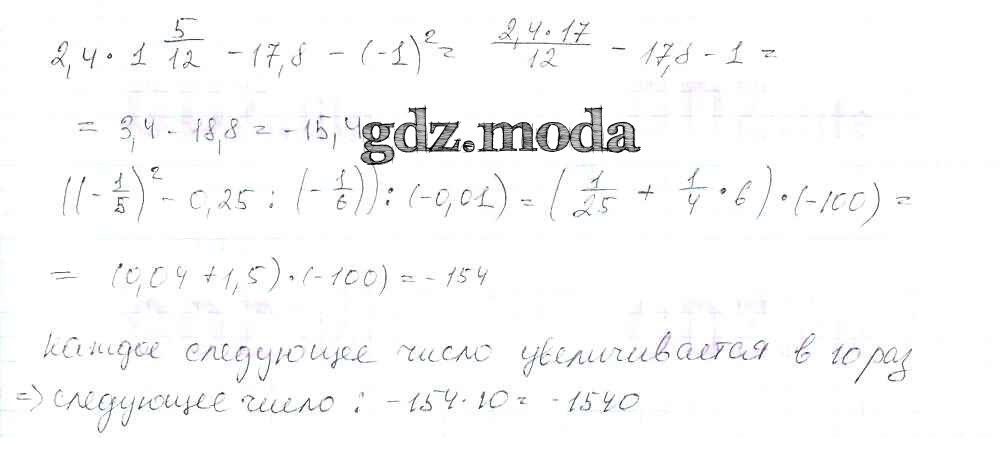 2,4 · 1 5/12 - 17,8 - (-1)² = 2,4 · 17/12 - 17,8 - 1 =
= 3,4 - 18,8 = -15,4
gdz.moda
((-1/5)² - 0,25 : (-1/6)) : (-0,01) = (1/25 + 1/4 · 6) · (-100) =
= (0,04 + 1,5) · (-100) = -154
каждое следующее число увеличивается в 10 раз
=> следующее число : -154 · 10 = -1540